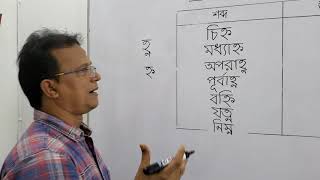 হ্ণ
হ্ন
শব্দ
চিহ্ন
মধ্যাহ্ন
অপরাহ্ণ
পূর্বাহ্ণ
বহ্নি
যত্ন
নিম্ন